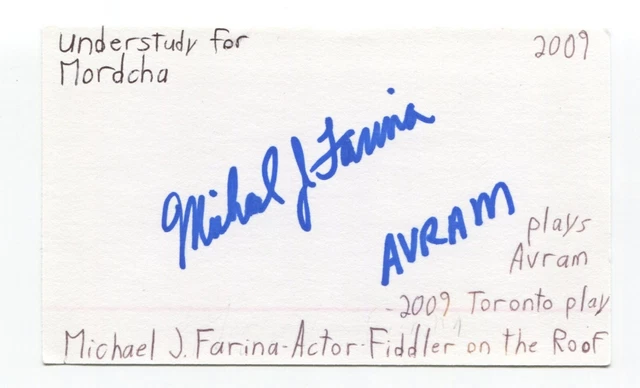 understudy for
Mordcha
2009
Michael J. Farina
AVRAM
plays
Avram
-2009 Toronto play
Michael J. Farina-Actor-Fiddler on the Roof